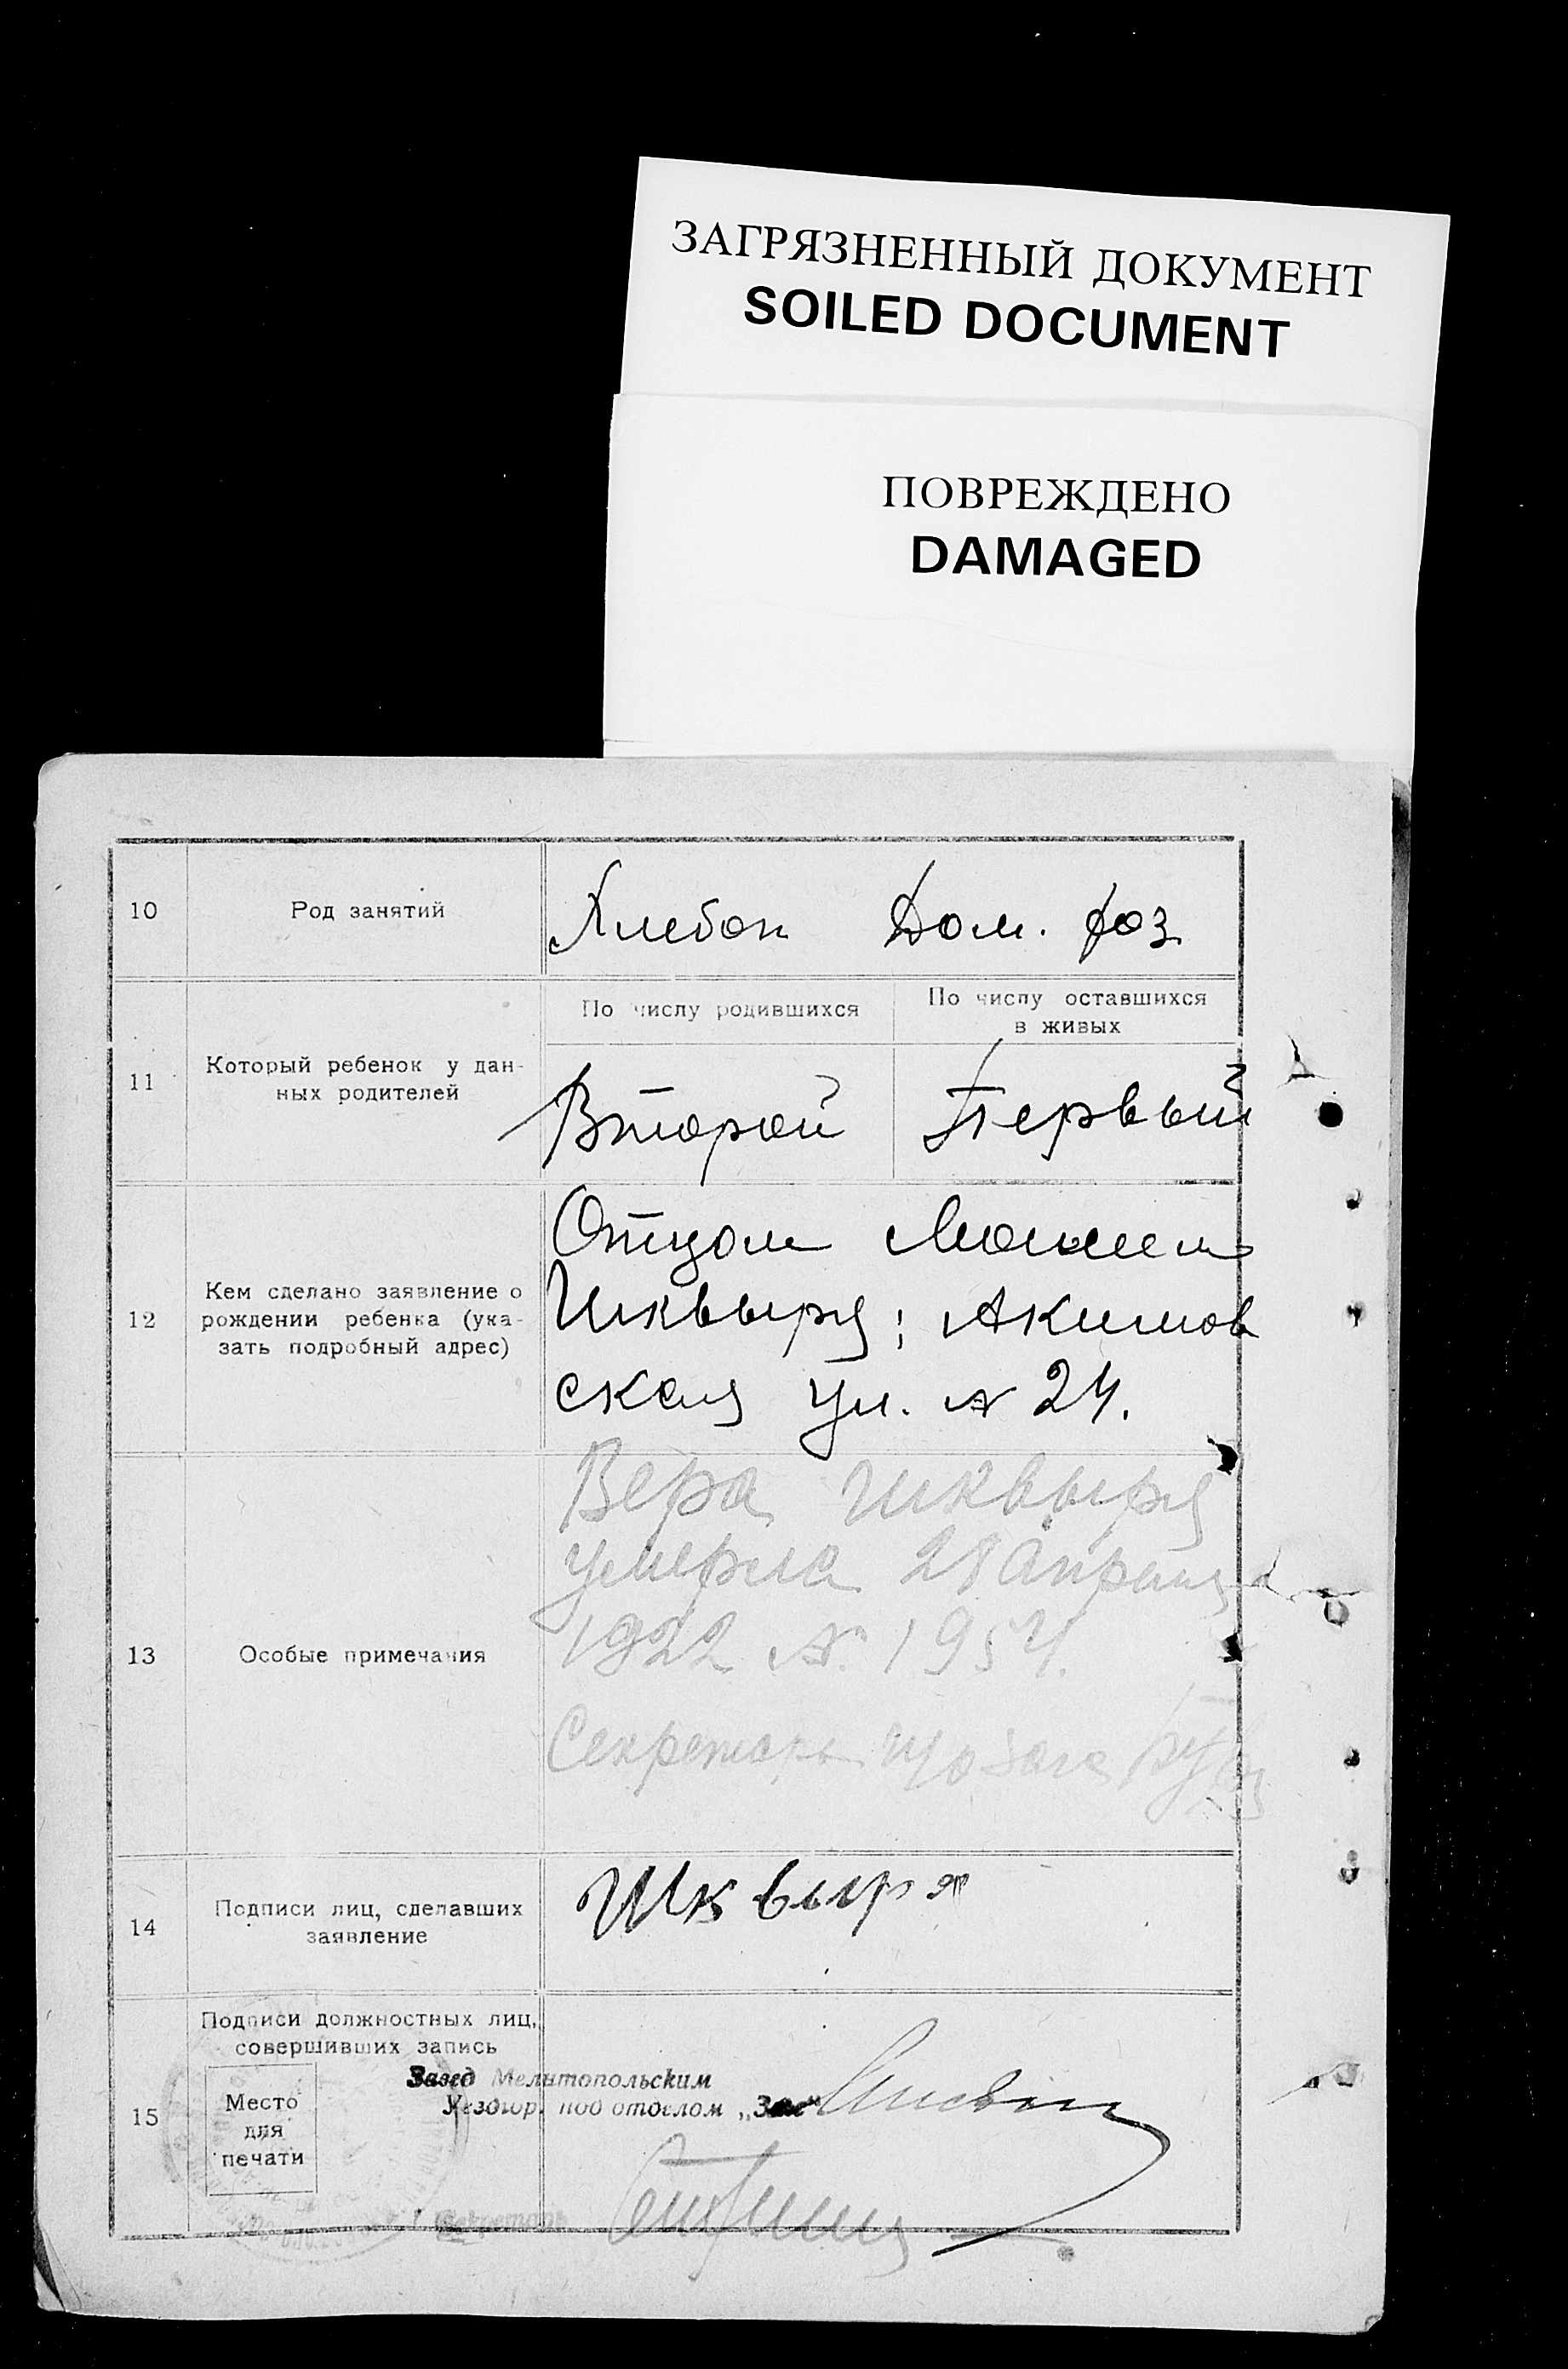 ЗАГРЯЗНЕННЫЙ ДОКУМЕНТ
SOILED DOCUMENT
ПОВРЕЖДЕНО
DAMAGED
10 Род занятий Хлебоп Дом. хоз
По числу родившихся По числу оставшихся
в живых
11 Который ребенок у дан-
ных родителей
Второй Первый
12 Кем сделано заявление о
рождении ребенка (ука-
зать подробный адрес)
Отцом
Шквыря; Акимов
ская ул. № 24.
13 Особые примечания
Вера Шквыря
умерла 28 апреля
1922 № 1954.
Секретарь
14 Подписи лиц, сделавших
заявление
Шквыря
15 Подписи должностных лиц,
совершивших запись
Место
для
печати
Завед Мелитопольским
Уездгор. под отделом „Загс“
Секретарь